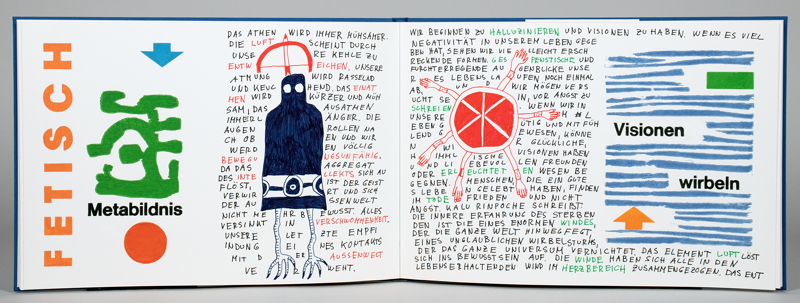 FETISCH
Metabildnis
DAS ATHEN WIRD IMMER MÜHSAMER.
DIE LUFT SCHEINT DURCH
UNSERE KEHLE ZU
ENTWEICHEN. UNSERE
ATMUNG WIRD RASSELND
UND KEUCHEND. DAS EINAT
MEN WIRD KÜRZER UND MÜH
SAM, DAS AUSATMEN
IMMER LÄNGER. DIE
AUGEN ROLLEN NA
CH OBEN UND WIR
WERDEN VÖLLIG
BEWEGUNGSUNFÄHIG.
DA DAS AGGREGAT
DES INTELLEKTS SICH AU
FLÖST, IST DER GEIST
VERWIRRT UND SICH
DER AUSSENWELT
NICHT MEHR BEWUSST. ALLES
VERSINKT IN VERSCHWOMMENHEIT.
UNSERE LETZTE EMPF
INDUNG EINES KONTAKTS
MIT DER AUSSENWELT
VERWEHT.
WIR BEGINNEN ZU HALLUZINIEREN UND VISIONEN ZU HABEN. WENN ES VIEL
NEGATIVITÄT IN UNSEREM LEBEN GEGE
BEN HAT, SEHEN WIR VIELLEICHT ERSCH
RECKENDE FORMEN. GESPENSTISCHE UND
FURCHTERREGENDE AUGENBLICKE UNSE
RES LEBENS LAUFEN NOCH EINMAL
AB, UND WIR MÖGEN VERS
UCHT SEIN, VOR ANGST ZU
SCHREIEN. WENN WIR IN
UNSEREM
LEBEN GÜTIG UND MITFÜH
LEND GEWESEN, KÖNNE
N WIR GLÜCKLICHE,
HIMMLISCHE VISIONEN HABEN
UND LIEBEVOLLEN FREUNDEN
ODER ERLEUCHTETEN WESEN BE
GEGNEN. MENSCHEN, DIE EIN GUTE
S LEBEN GELEBT HABEN, FINDEN
IM TODE FRIEDEN UND NICHT
ANGST. KALU RINPOCHE SCHREIBT
DIE INNERE ERFAHRUNG DES STERBEN
DEN IST DIE EINES ENORMEN WINDES,
DER DIE GANZE WELT HINWEGFEGT,
EINES UNGLAUBLICHEN WIRBELSTURMS,
DER DAS GANZE UNIVERSUM VERNICHTET. DAS ELEMENT LUFT LÖST
SICH INS BEWUSSTSEIN AUF. DIE WINDE HABEN SICH ALLE IN DEN
LEBENSERHALTENDEN WIND IM HERZBEREICH ZUSAMMENGEZOGEN. DAS ENT
Visionen
wirbeln